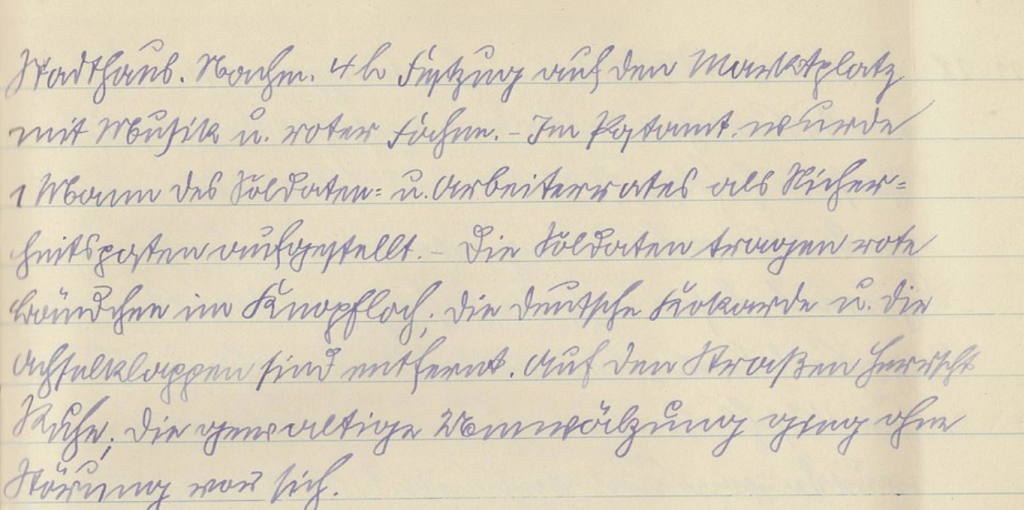 Stadthaus. Nachm. 4 h Festzug auf den Marktplatz
mit Musik u. roter Fahne. - Im Postamt wurde
1 Mann des Soldaten- u. Arbeiterrates als Sicher-
heitsposten aufgestellt. - Die Soldaten tragen rote
Bändchen im Knopfloch; die deutsche Kokarde u. die
Achselklappen sind entfernt. Auf den Straßen herrscht
Ruhe; die gewaltige Umwälzung ging ohne
Störung vor sich.